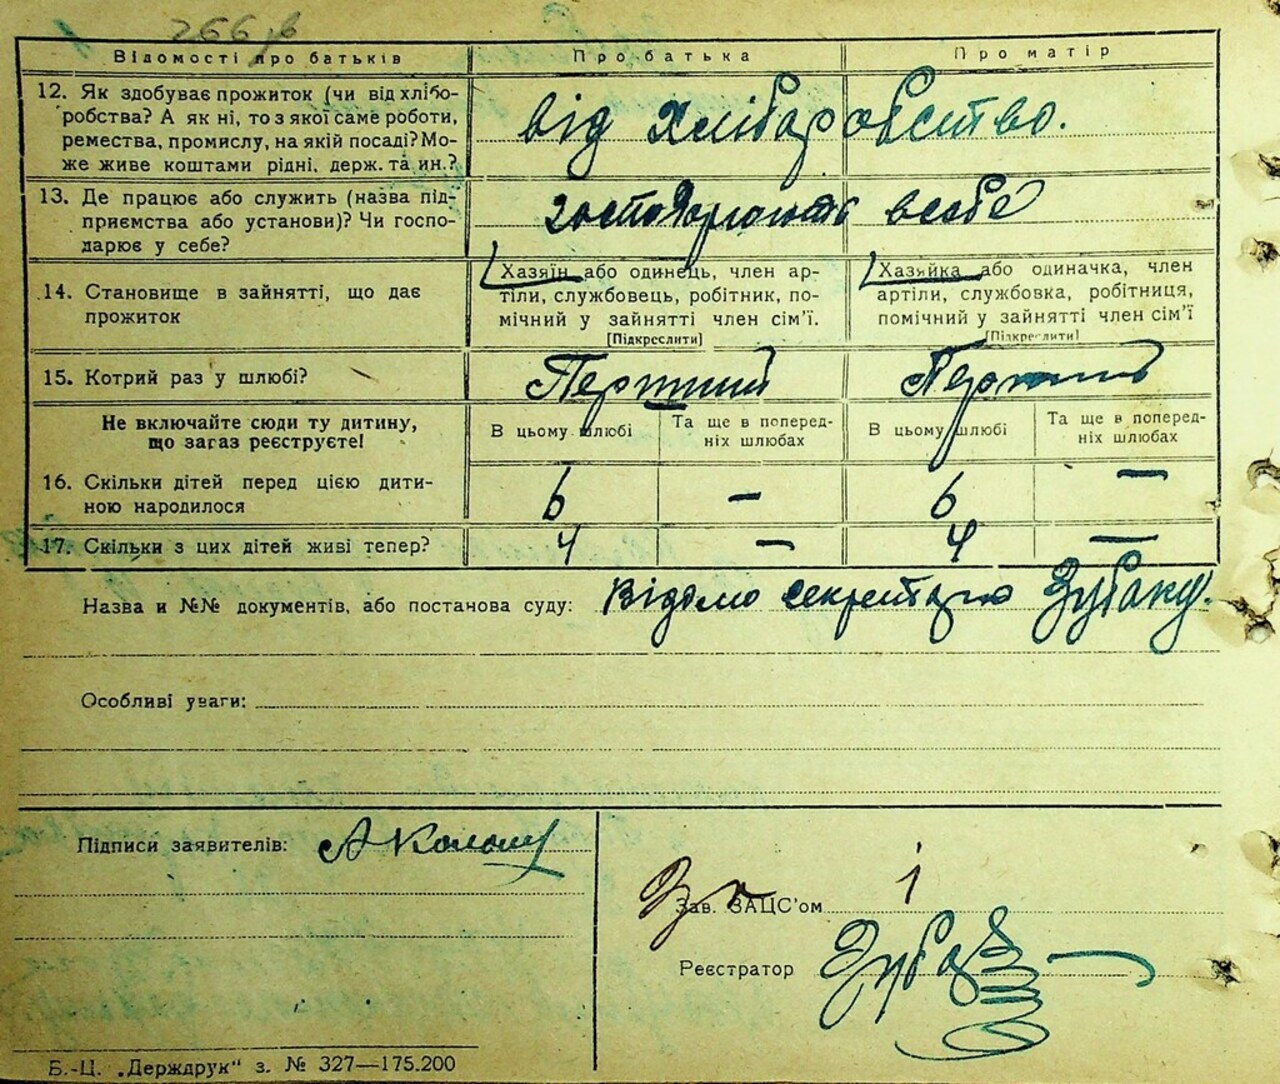 266 зв
Відомості про батьків Про батька Про матір
12. Як здобуває прожиток (чи від хлібо-
робства? А як ні, то з якої саме роботи,
ремества, промислу, на якій посаді? Мо-
же живе коштами рідні, держ. та ин.?
від хліборобство.
13. Де працює або служить (назва під-
приємства або установи)? Чи госпо-
дарює у себе?
господарюють в себе
14. Становище в зайнятті, що дає
прожиток
Хазяїн або одинець, член ар-
тіли, службовець, робітник, по-
мічний у зайнятті член сім'ї.
[Підкреслити]
Хазяйка або одиначка, член
артіли, службовка, робітниця,
помічний у зайнятті член сім'ї
[Підкреслити]
15. Котрий раз у шлюбі? Первший Первший
Не включайте сюди ту дитину,
що загаз реєструєте!
В цьому шлюбі
Та ще в поперед-
ніх шлюбах
В цьому шлюбі
Та ще в поперед-
ніх шлюбах
16. Скільки дітей перед цією дити-
ною народилося
6 — 6 —
17. Скільки з цих дітей живі тепер? 4 — 4 —
Назва и №№ документів, або постанова суду: Відомо секретарю Зубаку.
Особливі уваги:
Підписи заявителів:
Зав. ЗАЦС'ом
Реєстратор Зубак
Б.-Ц. „Держдрук" з. № 327—175.200